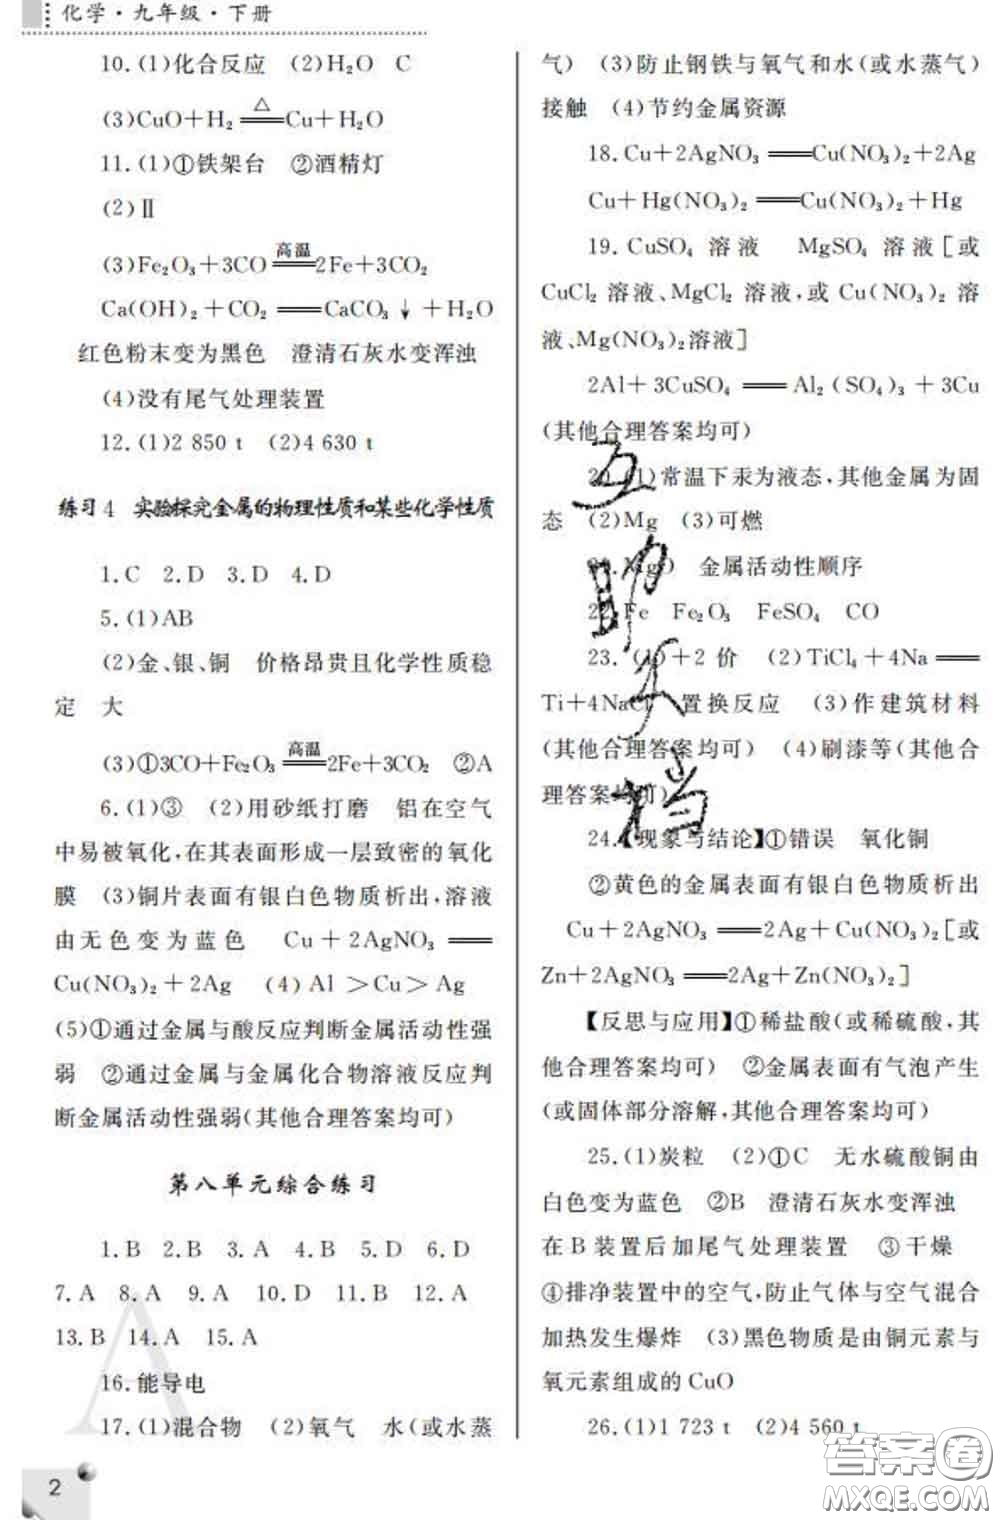 化学·九年级·下册
10.(1)化合反应 (2)H₂O C
(3)CuO+H₂ ══△══ Cu+H₂O
11.(1)①铁架台 ②酒精灯
(2)Ⅱ
(3)Fe₂O₃+3CO ══高温══ 2Fe+3CO₂
Ca(OH)₂+CO₂ ══ CaCO₃↓+H₂O
红色粉末变为黑色 澄清石灰水变浑浊
(4)没有尾气处理装置
12.(1)2 850 t (2)4 630 t
练习4 实验探究金属的物理性质和某些化学性质
1.C 2.D 3.D 4.D
5.(1)AB
(2)金、银、铜 价格昂贵且化学性质稳
定 大
(3)①3CO+Fe₂O₃ ══高温══ 2Fe+3CO₂ ②A
6.(1)③ (2)用砂纸打磨 铝在空气
中易被氧化,在其表面形成一层致密的氧化
膜 (3)铜片表面有银白色物质析出,溶液
由无色变为蓝色 Cu+2AgNO₃ ══
Cu(NO₃)₂+2Ag (4)Al>Cu>Ag
(5)①通过金属与酸反应判断金属活动性强
弱 ②通过金属与金属化合物溶液反应判
断金属活动性强弱(其他合理答案均可)
第八单元综合练习
1.B 2.B 3.A 4.B 5.D 6.D
7.A 8.A 9.A 10.D 11.B 12.A
13.B 14.A 15.A
16.能导电
17.(1)混合物 (2)氧气 水(或水蒸
A
2
气) (3)防止钢铁与氧气和水(或水蒸气)
接触 (4)节约金属资源
18.Cu+2AgNO₃ ══ Cu(NO₃)₂+2Ag
Cu+Hg(NO₃)₂ ══ Cu(NO₃)₂+Hg
19.CuSO₄ 溶液 MgSO₄ 溶液[或
CuCl₂ 溶液、MgCl₂ 溶液,或 Cu(NO₃)₂ 溶
液、Mg(NO₃)₂溶液]
2Al+3CuSO₄ ══ Al₂(SO₄)₃+3Cu
(其他合理答案均可)
20.(1)常温下汞为液态,其他金属为固
态 (2)Mg (3)可燃
21.MgO 金属活动性顺序
22.Fe Fe₂O₃ FeSO₄ CO
23.(1)+2价 (2)TiCl₄+4Na ══
Ti+4NaCl 置换反应 (3)作建筑材料
(其他合理答案均可) (4)刷漆等(其他合
理答案均可)
24.【现象与结论】①错误 氧化铜
②黄色的金属表面有银白色物质析出
Cu+2AgNO₃ ══ 2Ag+Cu(NO₃)₂[或
Zn+2AgNO₃ ══ 2Ag+Zn(NO₃)₂]
【反思与应用】①稀盐酸(或稀硫酸,其
他合理答案均可) ②金属表面有气泡产生
(或固体部分溶解,其他合理答案均可)
25.(1)炭粒 (2)①C 无水硫酸铜由
白色变为蓝色 ②B 澄清石灰水变浑浊
在B装置后加尾气处理装置 ③干燥
④排净装置中的空气,防止气体与空气混合
加热发生爆炸 (3)黑色物质是由铜元素与
氧元素组成的CuO
26.(1)1 723 t (2)4 560 t
答案圈
MXQE.COM